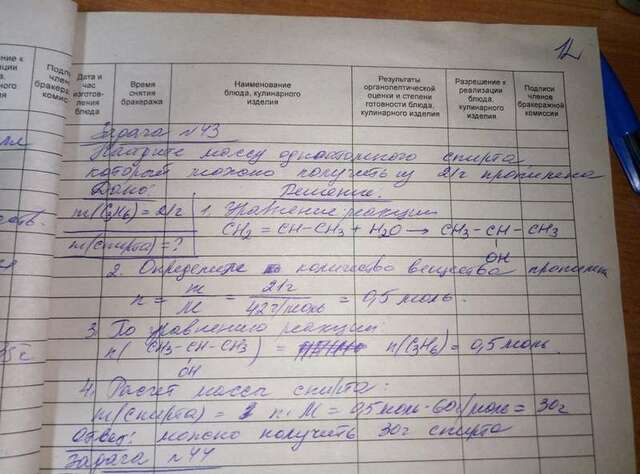 12
Дата и час изготовления блюда
Время снятия бракеража
Наименование блюда, кулинарного изделия
Результаты органолептической оценки и степени готовности блюда, кулинарного изделия
Разрешение к реализации блюда, кулинарного изделия
Подписи членов бракеражной комиссии
Задача №43
Найдите массу одноатомного спирта,
который можно получить из 21г пропилена
Дано: Решение:
m(C3H6) = 21г 1. Уравнение реакции
CH2 = CH-CH3 + H2O → CH3 - CH - CH3
m(спирта) = ? OH
2. Определите количество вещества пропилена
n = m/M = 21г/42г/моль = 0,5 моль.
3. По уравнению реакции:
n( CH3-CH-CH3 ) = n(C3H6) = 0,5 моль.
OH
4. Расчет массы спирта:
m(спирта) = n·M = 0,5 моль · 60г/моль = 30г
Ответ: можно получить 30г спирта
Задача №44